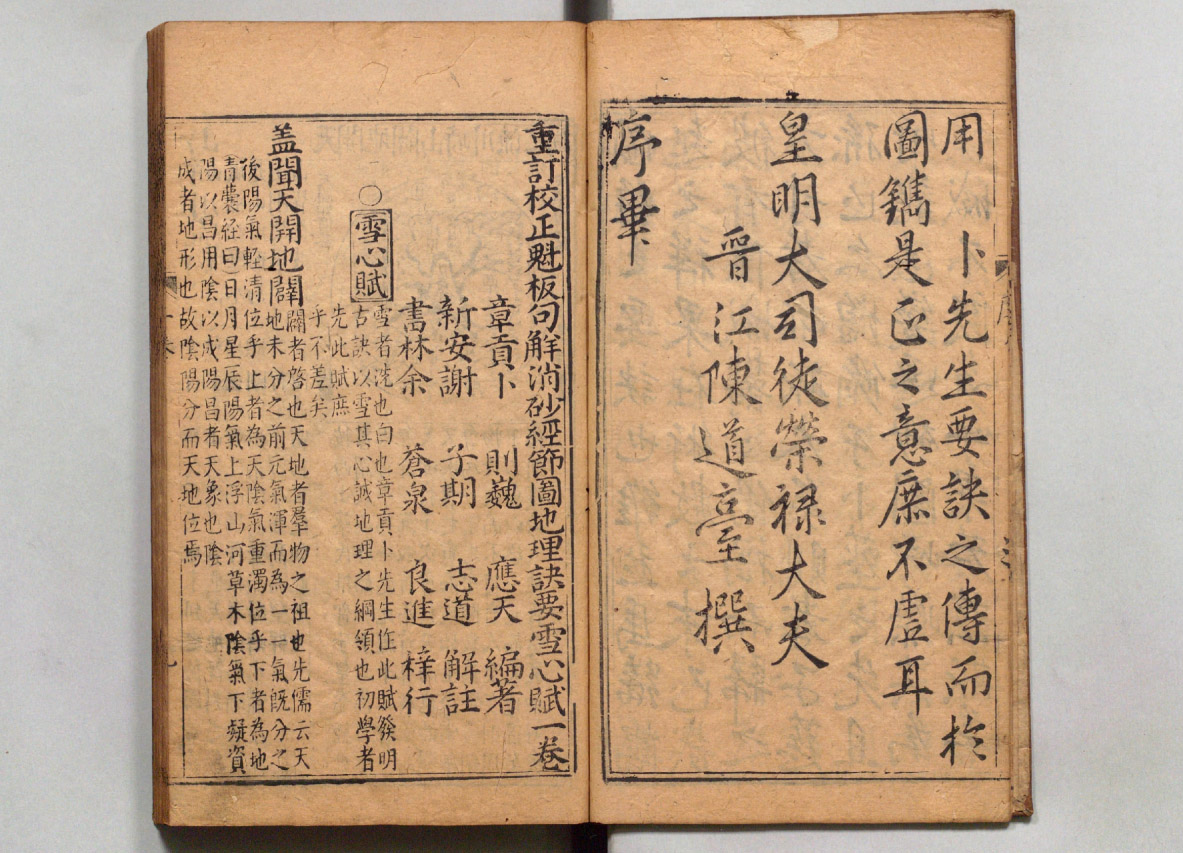 用卜先生要訣之傳而於
圖鐫是正之意庶不虗耳
皇明大司徒榮禄大夫
晉江陳道亨撰
序畢
重訂校正魁板句解消砂經節圖地理訣要雪心賦一卷
章貢卜 則巍 應天 編著
新安謝 子期 志道 解註
書林余 蒼泉 良進 梓行
○雪心賦
雪者洗也白也章貢卜先生作此賦發明
古訣以雪其心誠地理之綱領也初學者
先此賦庶
乎不差矣
盖聞天開地闢
闢者啓也天地者羣物之祖也先儒云天
地未分之前元氣渾而為一一氣既分之
後陽氣輕清位乎上者為天陰氣重濁位乎下者為地
青囊經曰日月星辰陽氣上浮山河草木陰氣下凝資
陽以昌用陰以成陽昌者天象也陰
成者地形也故陰陽分而天地位焉